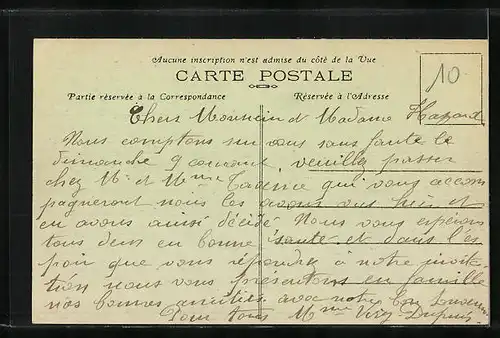 Aucune inscription n'est admise du côté de la Vue
CARTE POSTALE
Partie réservée à la Correspondance
Réservée à l'Adresse
10
Chers Monsieur et Madame
Nous comptons sur vous sans faute le
dimanche 9 courant, veuillez passer
chez Mr et Mme qui vous accom
pagneront nous les avons vus hier et
en avons aussi décidé. Nous vous espérons
tous deux en bonne santé et dans l'es
poir que vous répondrez à notre invita-
tion nous vous présentons en famille
nos bonnes amitiés avec notre bon
Pour tous Mme